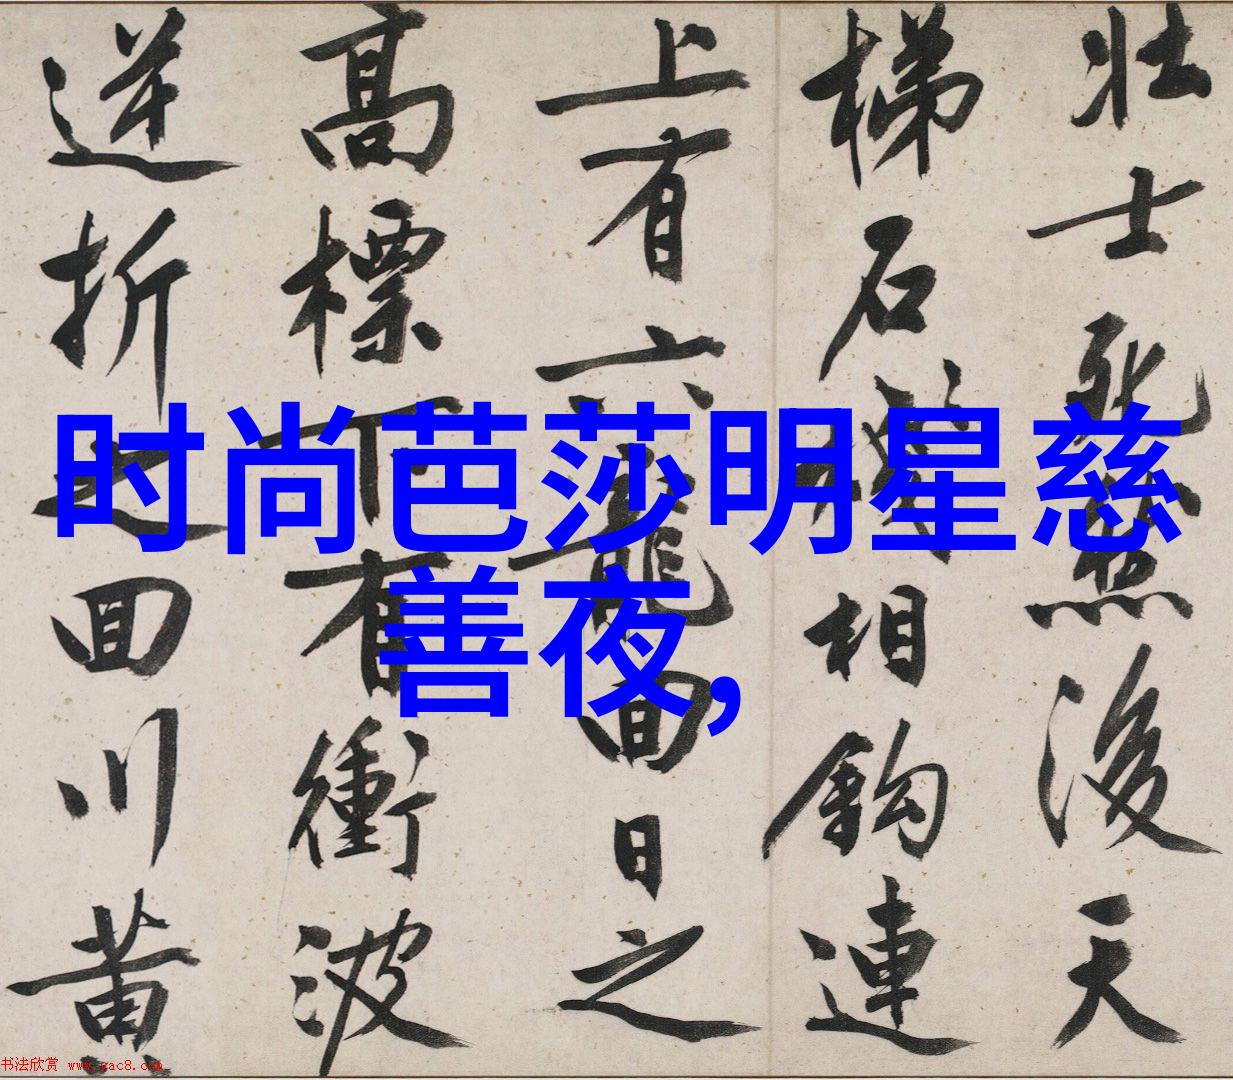 壮士死然後天
梯石棧相鉤連
上有六龍回日之
高標下有衝波
逆折之回川黄
时尚芭莎明星慈
善夜,
书法欣赏 www.yac8.com